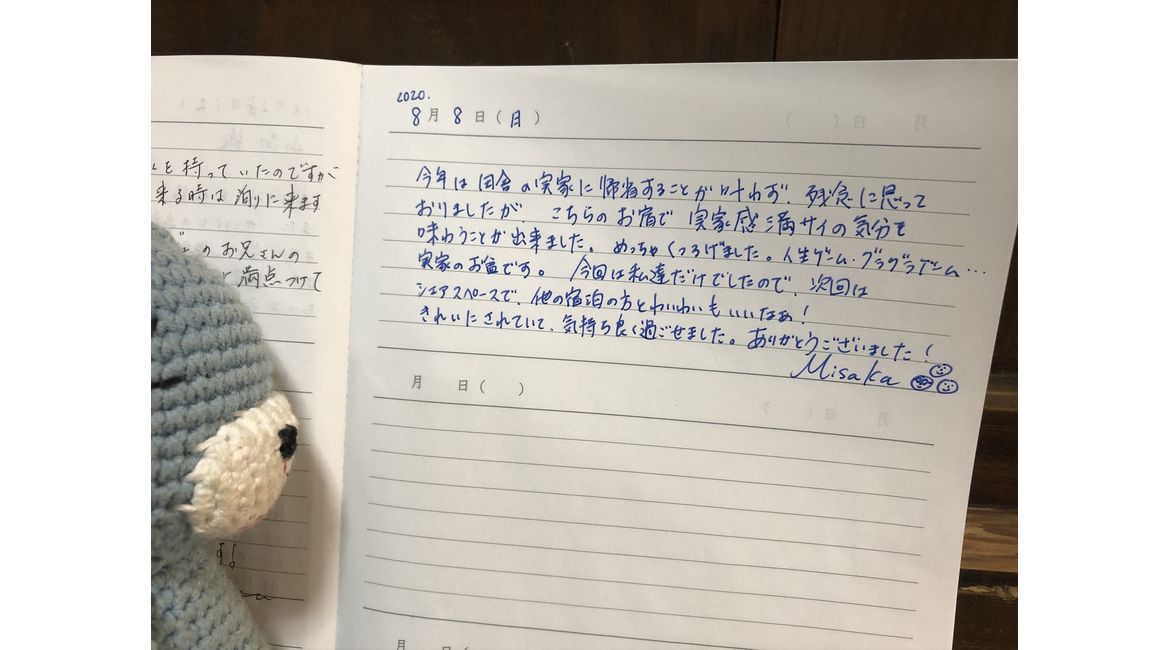 を持っていたのですが
来る時は泊りに来ます
のお兄さんの
満点つけて
す!
2020.
8月 8日(月)
今年は田舎の実家に帰省することが叶わず、残念に思って
おりましたが、こちらのお宿で実家感満サイの気分を
味わうことが出来ました。めっちゃくつろげました。人生ゲーム・グラグラゲーム…
実家のお盆です。 今回は私達だけでしたので、次回は
シェアスペースで、他の宿泊の方とわいわいもいいなぁ!
きれいにされていて、気持ち良く過ごせました。ありがとうございました!
Misaka
月 日( )
月 日(